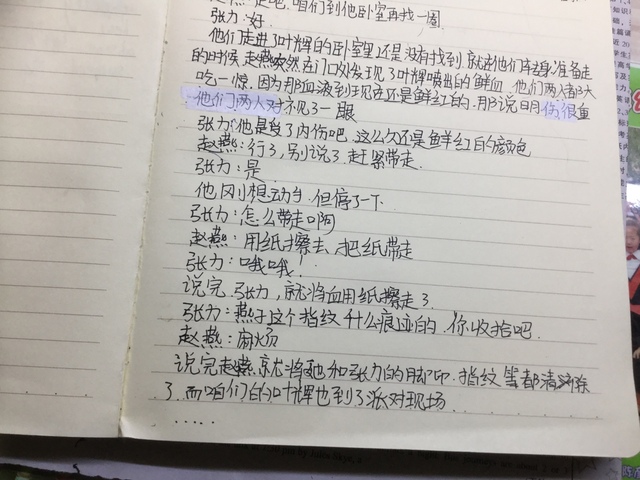 走吧,咱们到他卧室再找一圈
张力:好.
他们走进了叶辉的卧室里还是没有找到,就在他们转身准备走
的时候,赵燕突然在门口处发现了叶辉喷出的鲜血.他们两人都大
吃一惊.因为那血液到现在还是鲜红的.那说明伤很重
他们两人对视了一眼
张力:他是受了内伤吧,这么久还是鲜红的颜色
赵燕:行了,别说了,赶紧带走.
张力:是.
他刚想动手.但停了一下.
张力:怎么带走啊
赵燕:用纸擦去,把纸带走
张力:哦哦!
说完.张力,就将血用纸擦走了.
张力:燕子这个指纹什么痕迹的.你收拾吧.
赵燕:麻烦
说完赵燕.就将她和张力的脚印.指纹等都清除
了.而咱们的叶辉也到了派对现场.
.....